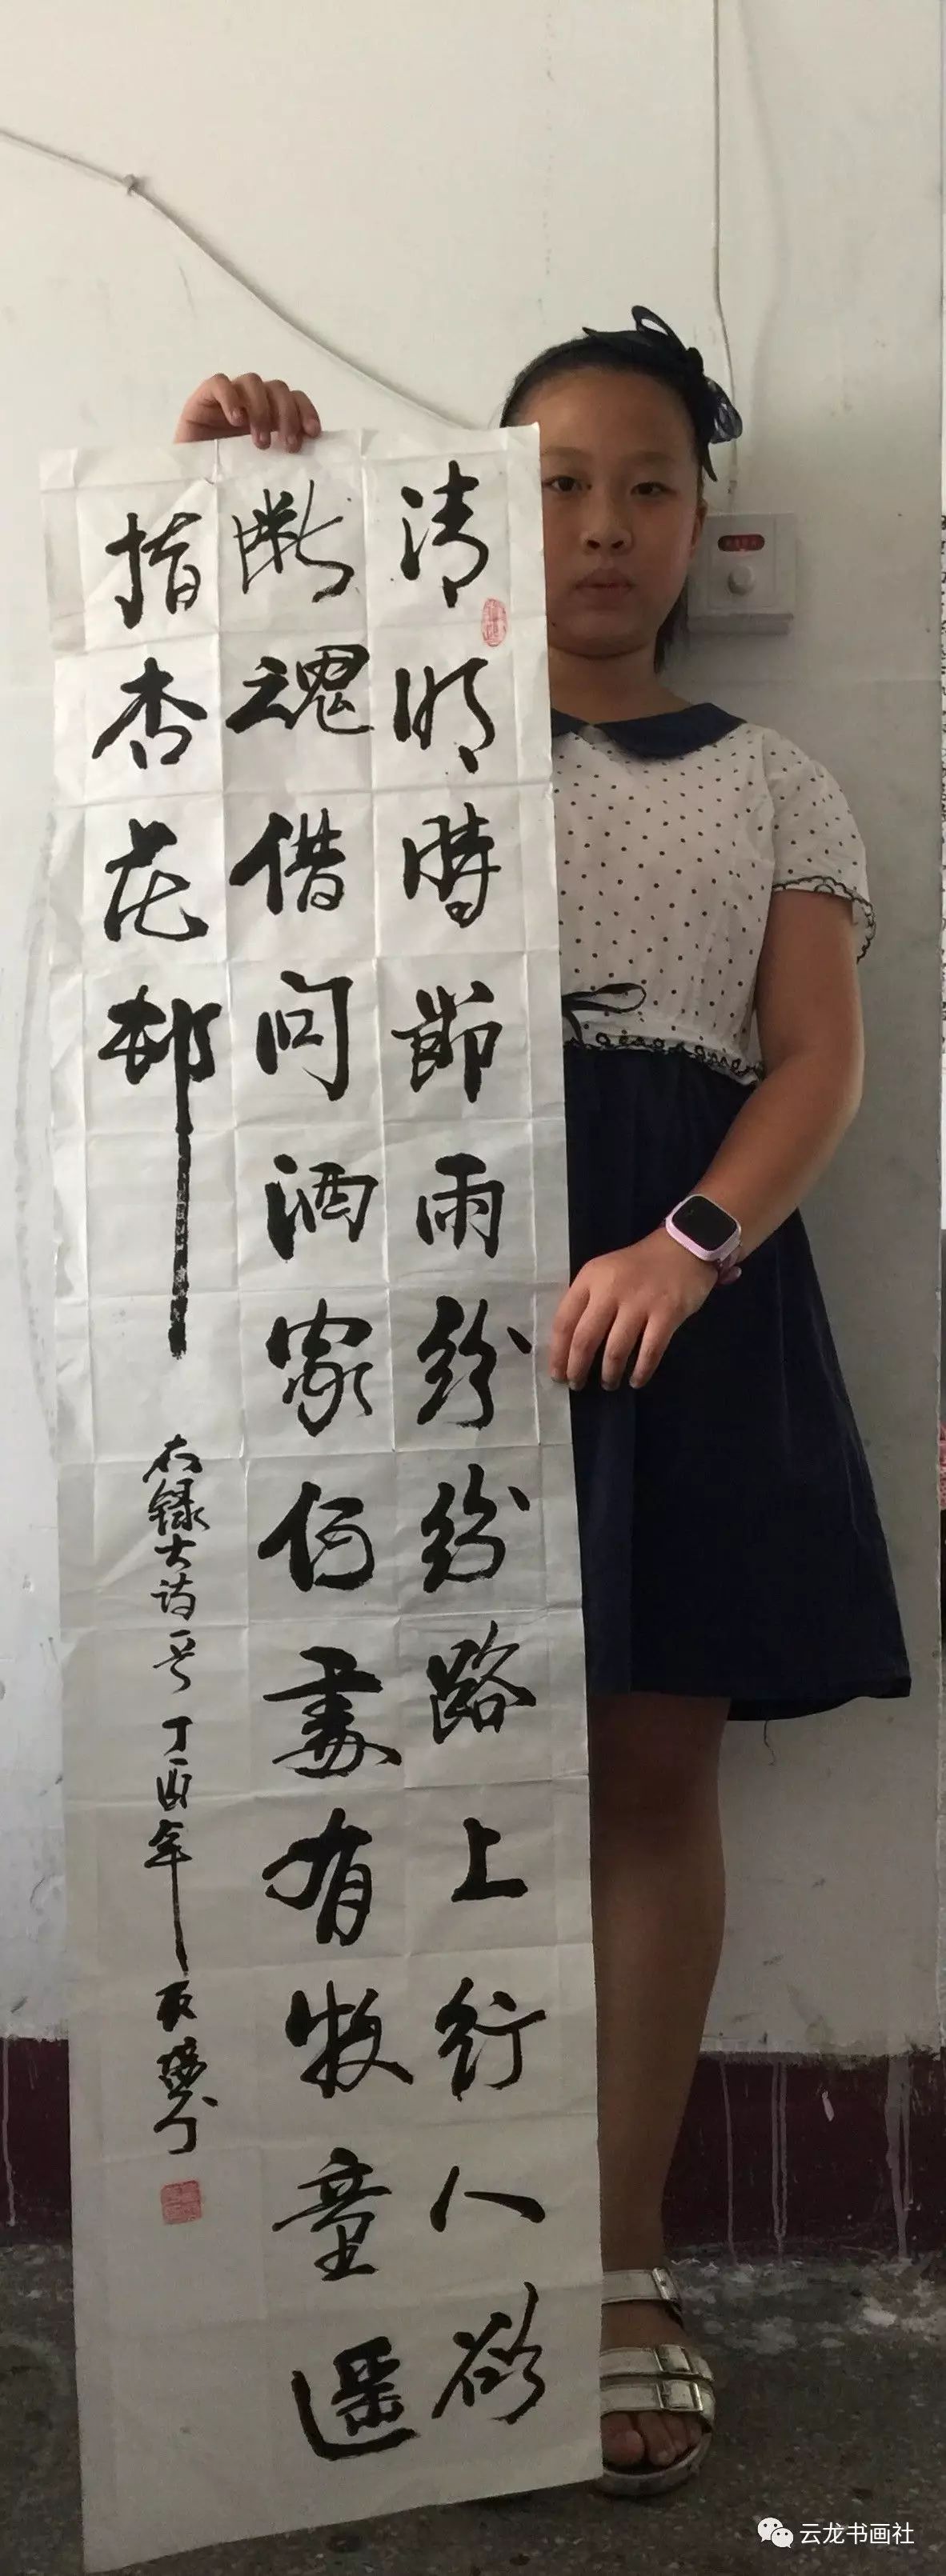 清明時節雨紛紛路上行人欲
斷魂借問酒家何處有牧童遥
指杏花邨
右錄古詩一首 丁酉年
云龙书画社